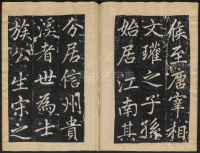 候至唐宰相
文瓘之子孫
始居江南其
分居信州貴
溪者世為士
族公生宋之